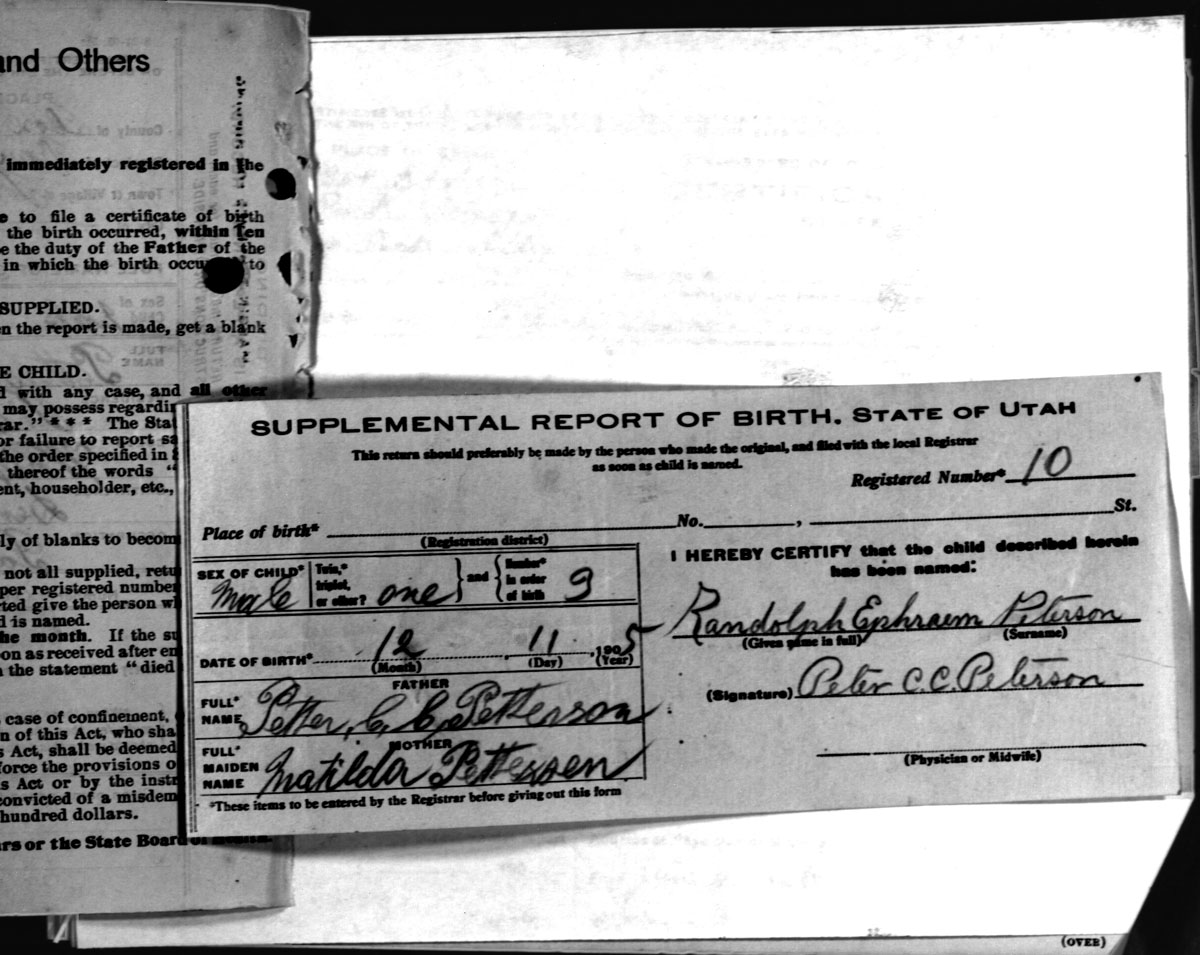 and Others
immediately registered in the
to file a certificate of birth
the birth occurred, within Ten
the duty of the Father of the
in which the birth to
SUPPLIED.
the report is made, get a blank
CHILD.
with any case, and all other
may possess
" * * * The
or failure to report
the order specified in
thereof the words "
householder, etc.,
of blanks to
not all supplied,
registered number
give the person
is named.
month. If the
as received after
the statement "died
case of confinement,
of this Act, who
Act, shall be deemed
the provisions
Act or by the
convicted of a
hundred dollars.
or the State Board
SUPPLEMENTAL REPORT OF BIRTH. STATE OF UTAH
This return should preferably be made by the person who made the original, and filed with the local Registrar
as soon as child is named.
Registered Number* 10
Place of birth* No. , St.
(Registration district)
SEX OF CHILD* Male
Twin,* triplet, or other? one } and { Number* in order of birth 9
DATE OF BIRTH* 12 11, 1905
(Month) (Day) (Year)
FATHER
FULL* NAME Petter, C. C. Petterson
MOTHER
FULL* MAIDEN NAME Matilda Pettersen
*These items to be entered by the Registrar before giving out this form
I HEREBY CERTIFY that the child described herein
has been named:
Randolph Ephraim Peterson
(Given name in full) (Surname)
(Signature) Peter C. C. Peterson
(Physician or Midwife)
(OVER)